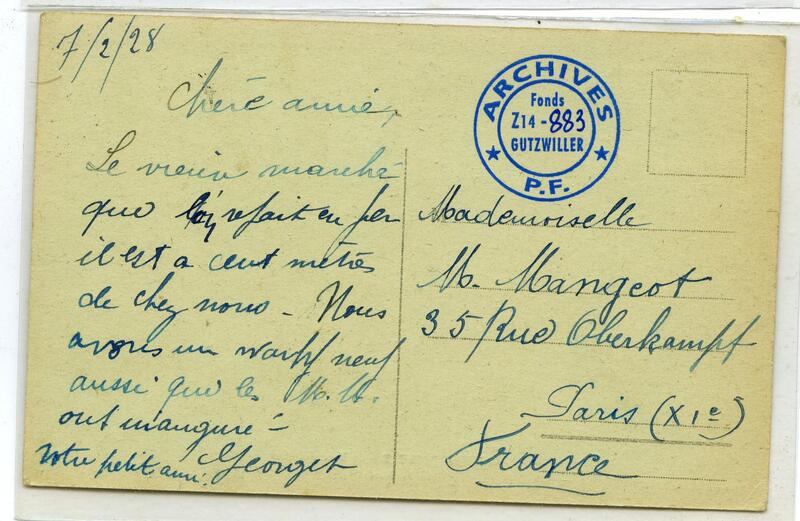 7/2/28
Chère amie,
Le vieux marché
que l'on refait en fer
il est a cent mètres
de chez nous - Nous
avons un warf neuf
aussi que les M.M.
ont inauguré -
Votre petit ami. Georget
ARCHIVES
Fonds
Z14 - 883
GUTZWILLER
P.F.
Mademoiselle
M. Mangeot
35 Rue Oberkampf
Paris (XIe)
France